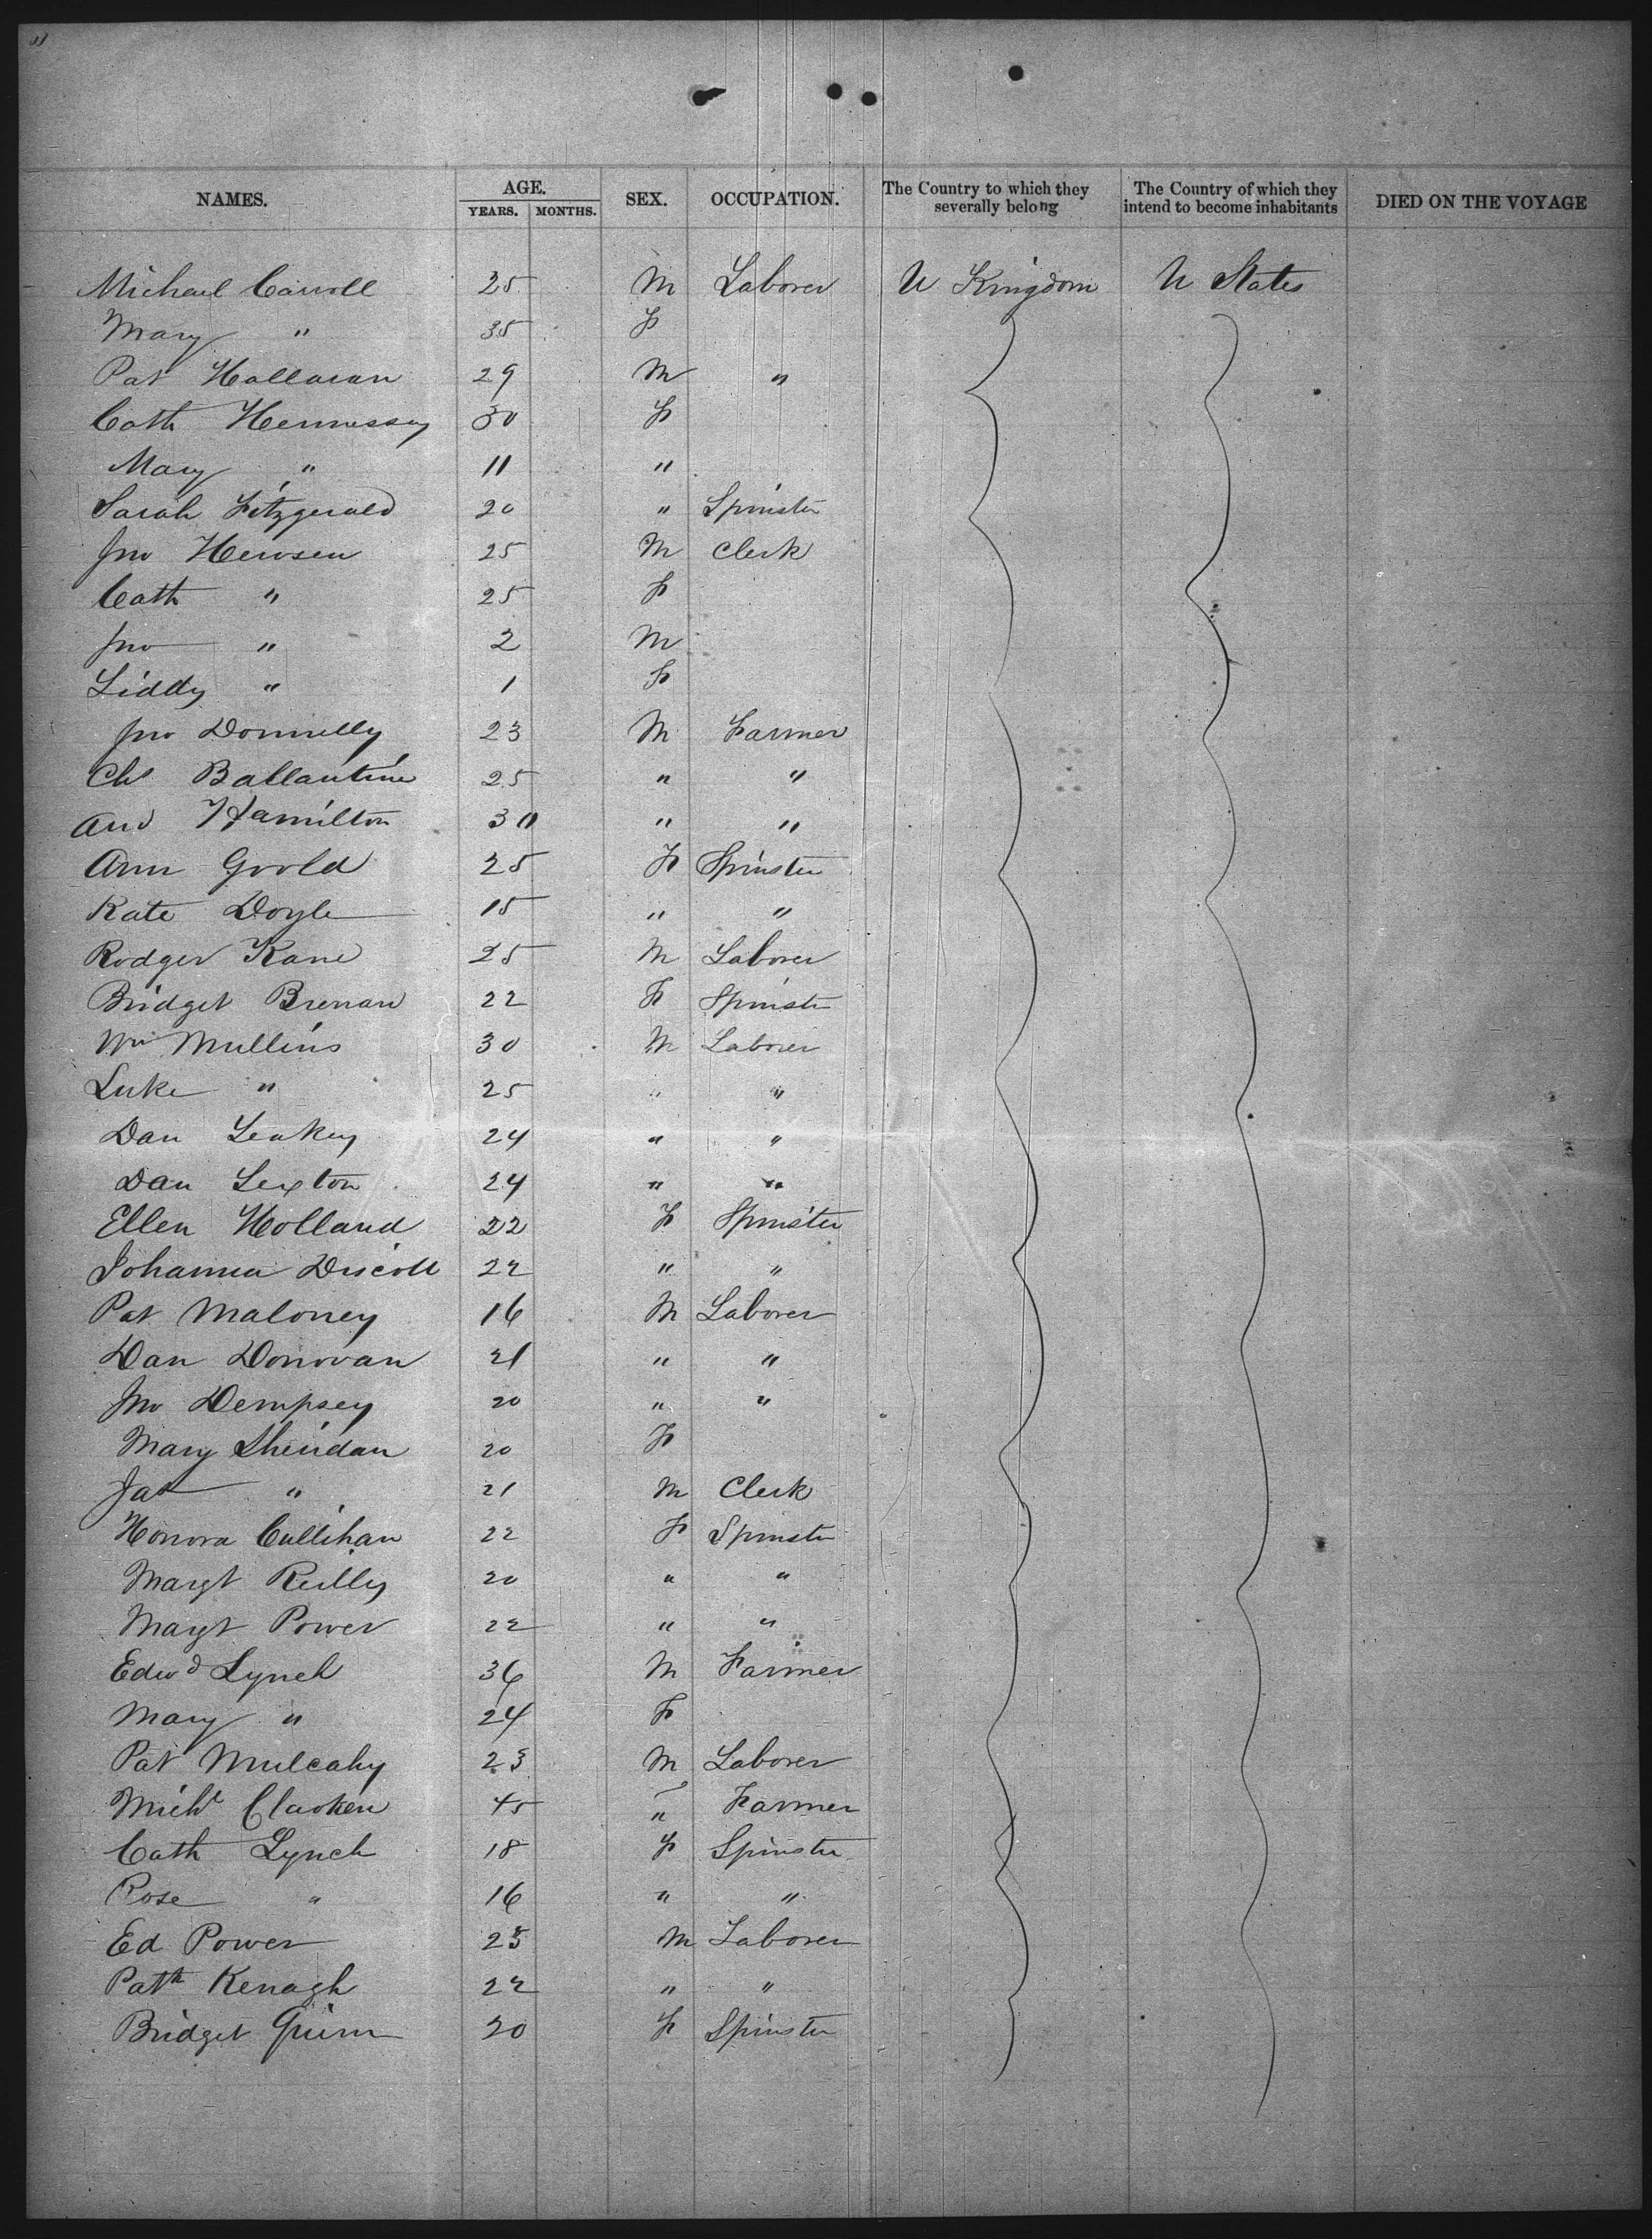 NAMES. AGE. YEARS. MONTHS. SEX. OCCUPATION. The Country to which they severally belong The Country of which they intend to become inhabitants DIED ON THE VOYAGE
Michael Carroll 35 M Laborer U Kingdom U States
Mary " 35 F
Pat Halloran 29 M "
Cath Hennessy 30 F
Mary " 11 "
Sarah Fitzgerald 20 " Spinster
Jno Hewsen 25 M Clerk
Cath " 25 F
Jno " 2 M
Liddy " 1 F
Jno Donnelly 23 M Farmer
Chs Ballantine 25 " "
And Hamilton 30 " "
Ann Goold 25 F Spinster
Kate Doyle 15 " "
Rodger Kane 25 M Laborer
Bridget Brenan 22 F Spinster
Wm Mullins 30 M Laborer
Luke " 25 " "
Dan Leakey 24 " "
Dan Sexton 24 " "
Ellen Holland 22 F Spinster
Johanna Driscoll 22 " "
Pat Maloney 16 M Laborer
Dan Donovan 21 " "
Jno Dempsey 20 " "
Mary Sheridan 20 F
Jas " 21 M Clerk
Honora Cullihan 22 F Spinster
Margt Reilly 20 " "
Margt Power 22 " "
Edwd Lynch 36 M Farmer
Mary " 24 F
Pat Mulcahy 23 M Laborer
Michl Clasken 45 " Farmer
Cath Lynch 18 F Spinster
Rose " 16 " "
Ed Power 23 M Laborer
Patk Kenagh 22 " "
Bridget Quinn 20 F Spinster